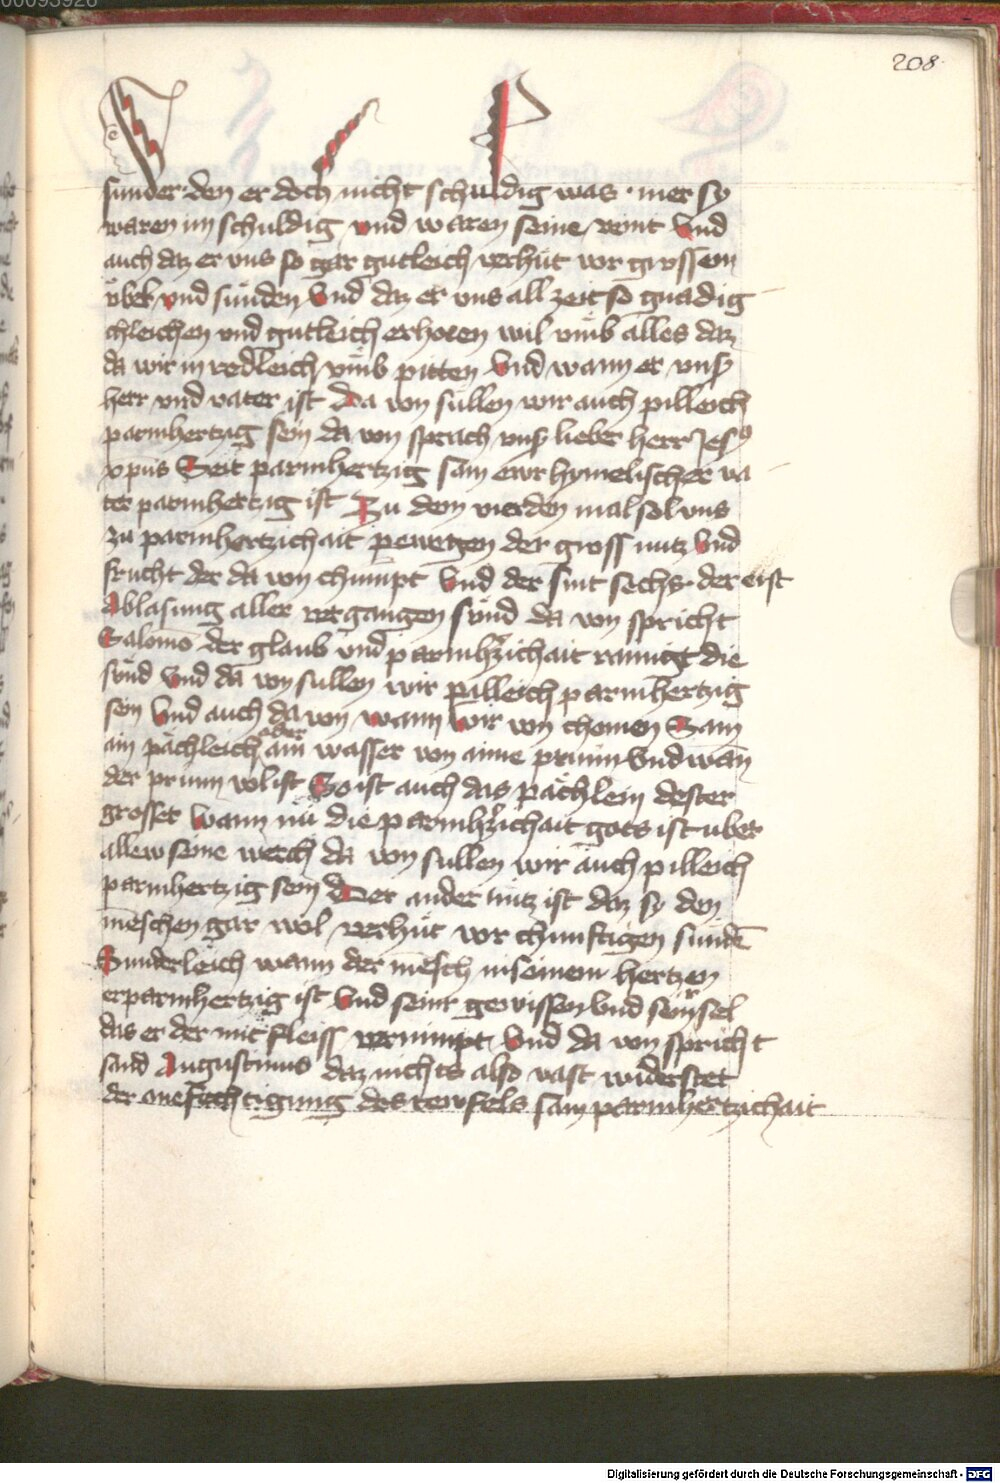 00095926
208
sunder den er doch nicht schuldig was · mer sy
waren im schuldig vnd waren seine veint Vnd
auch daz er vns so gar gutleich verhüt vor grossem
übel vnd sünden Vnd daz er vns all zeit so gnadig
chleichen vnd gutleich erhoren wil vmb alles daz
da wir in redleich vmb pitten Vnd wann er vnser
herr vnd vater ist Da von süllen wir auch pilleich
parmhertzig sein da von sprach vnser lieber herr Jesus
xpūs Seit parmhertzig sam ewr hymelischer va
ter parmhertzig ist Zu dem vierden mal sol vns
zu parmhertzichait pewegen der gross nutz Vnd
frucht der da von chumpt Vnd der sint sechs · der erst
Ablasung aller vergangen sünd da von spricht
Salomō der glaub vnd parmhzichait rainigt die
sünd Vnd da von sullen wir pilleich parmhertzig
sein Vnd auch da von wann wir von chomen Sam
ain pächleich oder ain wasser von aime prunn Vnd wan
der prunn vol ist So ist auch das pächlein dester
grosser Wann nu die parmhzichait gots ist uber
allew seine werch da von sullen wir auch pilleich
parmhertzig sein Der ander nutz ist daz sy den
mēschen gar wol verhüt vor chunftigen sundē
Sunderleich wann der mēsch in seinem hertzen
erparmhertzig ist Vnd seinr gewissen Vnd seinr sel
das er der mit fleiss vernimpt Vnd da von spricht
sand Augustinus daz nichts also vast widerstet
der anefechtigung des tewfels sam parmhertzichait
Digitalisierung gefördert durch die Deutsche Forschungsgemeinschaft - DFG